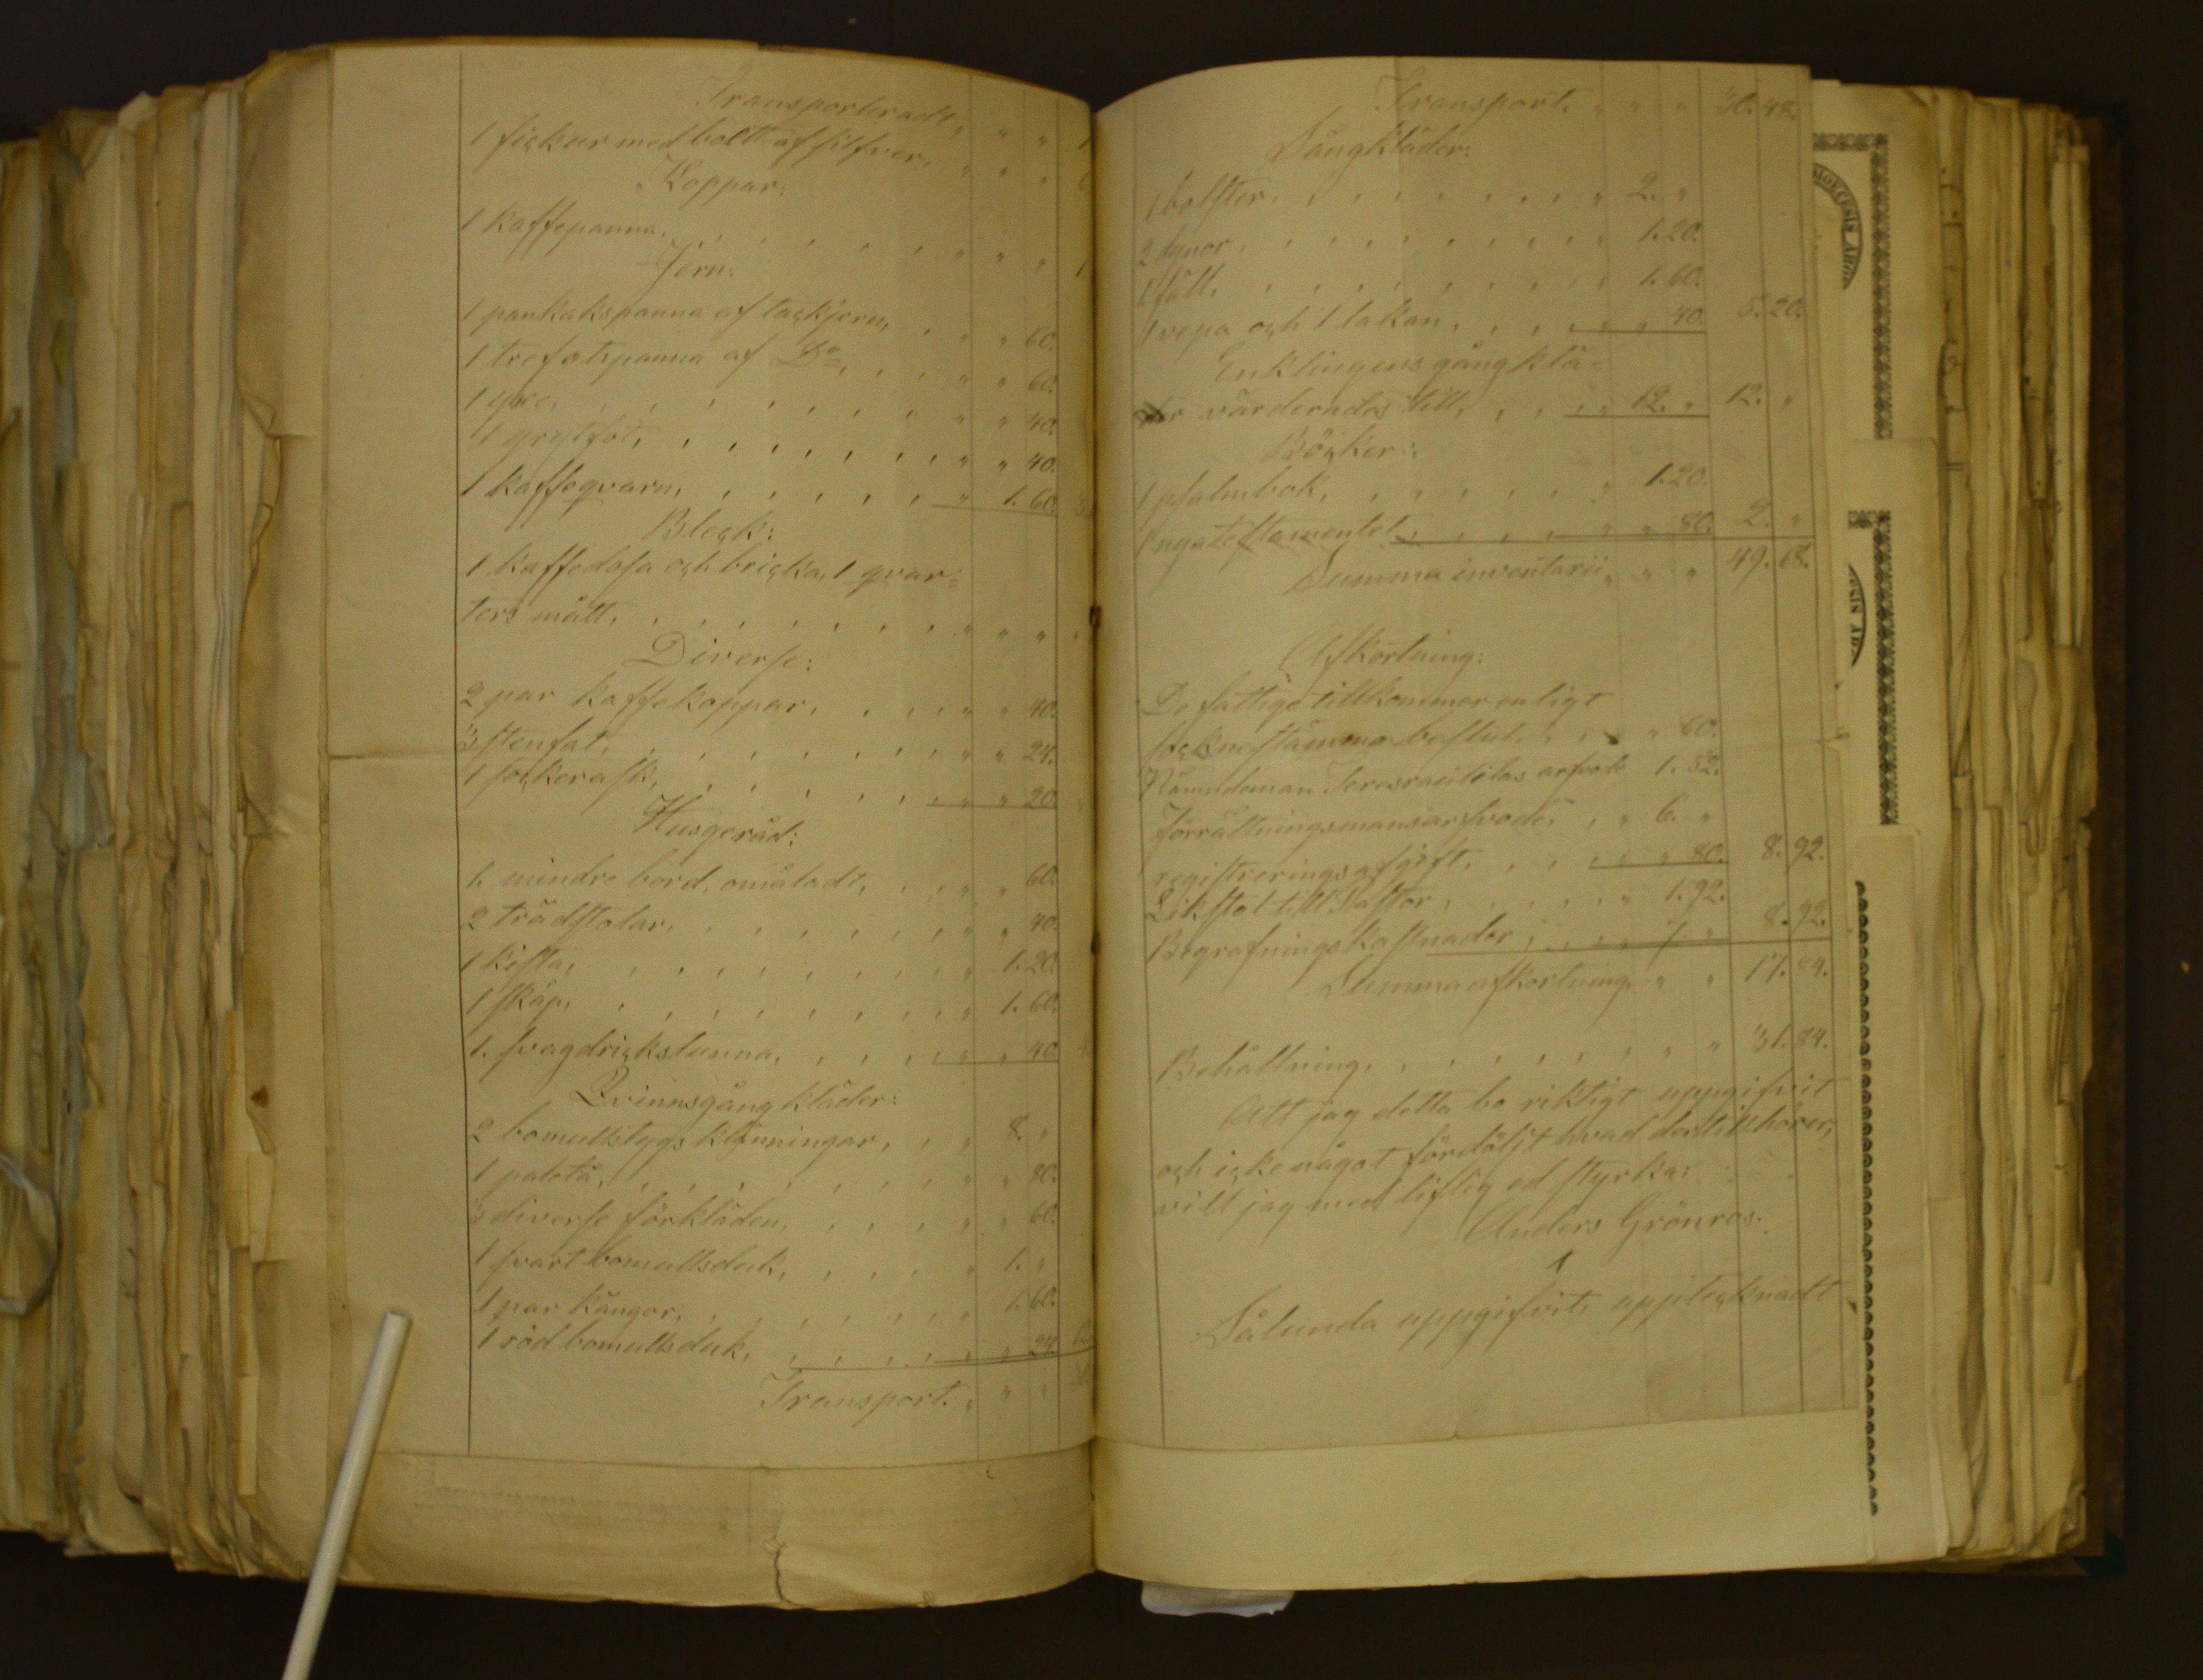 Transporteradt, " " 1
1 fickur med boett af silfver, " " "
Koppar:
1 kaffepanna, " " " 1
Jern:
1 pankakspanna af tackjern, " " 60.
1 trefotspanna af Do, " " 60.
1 yxe, " " 40.
1 grytfot, " " 40.
1 kaffeqvarn, " 1. 60.
Bleck:
1 kaffedosa och bricka, 1 qvar=
ters mått, " " "
Diverse:
2 par kaffekoppar, " " 40.
3 stenfat, " " 24.
1 sockerask, " " 20.
Husgeråd:
1. mindre bord, omåladt, " " 60.
2 trädstolar, " " 40.
1 kista, " 1. 20.
1 skåp, " 1. 60.
1. svagdrickstunna, " " 40.
Qvinnsgångkläder:
2 bomullstygs klänningar, " 8. "
1 paletå, " " 80.
3 diverse förkläden, " " 60.
1 svart bomullsduk, " 1. "
1 par kängor, " 1. 60.
1 röd bomullsduk, " " 24.
Transport. " "
Transport. " " " 30. 48.
Sängkläder:
1 bolster, " 2. "
2 dynor, " 1. 20.
1 fäll, " 1. 60.
1 vepa och 1 lakan, " " 40. 5. 20.
Enklingens gångklä=
der värderades till, " 12. " 12. "
Böcker:
1 psalmbok, " 1. 20.
1 nya testamentet, " " 80. 2. "
Summa inventarii, " " " 49. 68.
Afkortning:
De fattige tillkommer enligt
sockenstämmo beslut, " " 60.
Nämndeman arfvode 1. 52.
Förrättningsmansarfvode, " 6. "
registreringsafgift, " " 80. 8. 92.
Likstol till Pastor, " 1. 92.
Begrafningskostnader, " 7. " 8. 92.
Summa afkortning, " " 17. 84.
Behållning, " " " 31. 84.
Att jag detta bo riktigt uppgifvit
och icke något fördöljt hvad dertill hörer,
vill jag med liflig ed styrka:
Anders Grönros.
Sålunda uppgifvit, upptecknadt